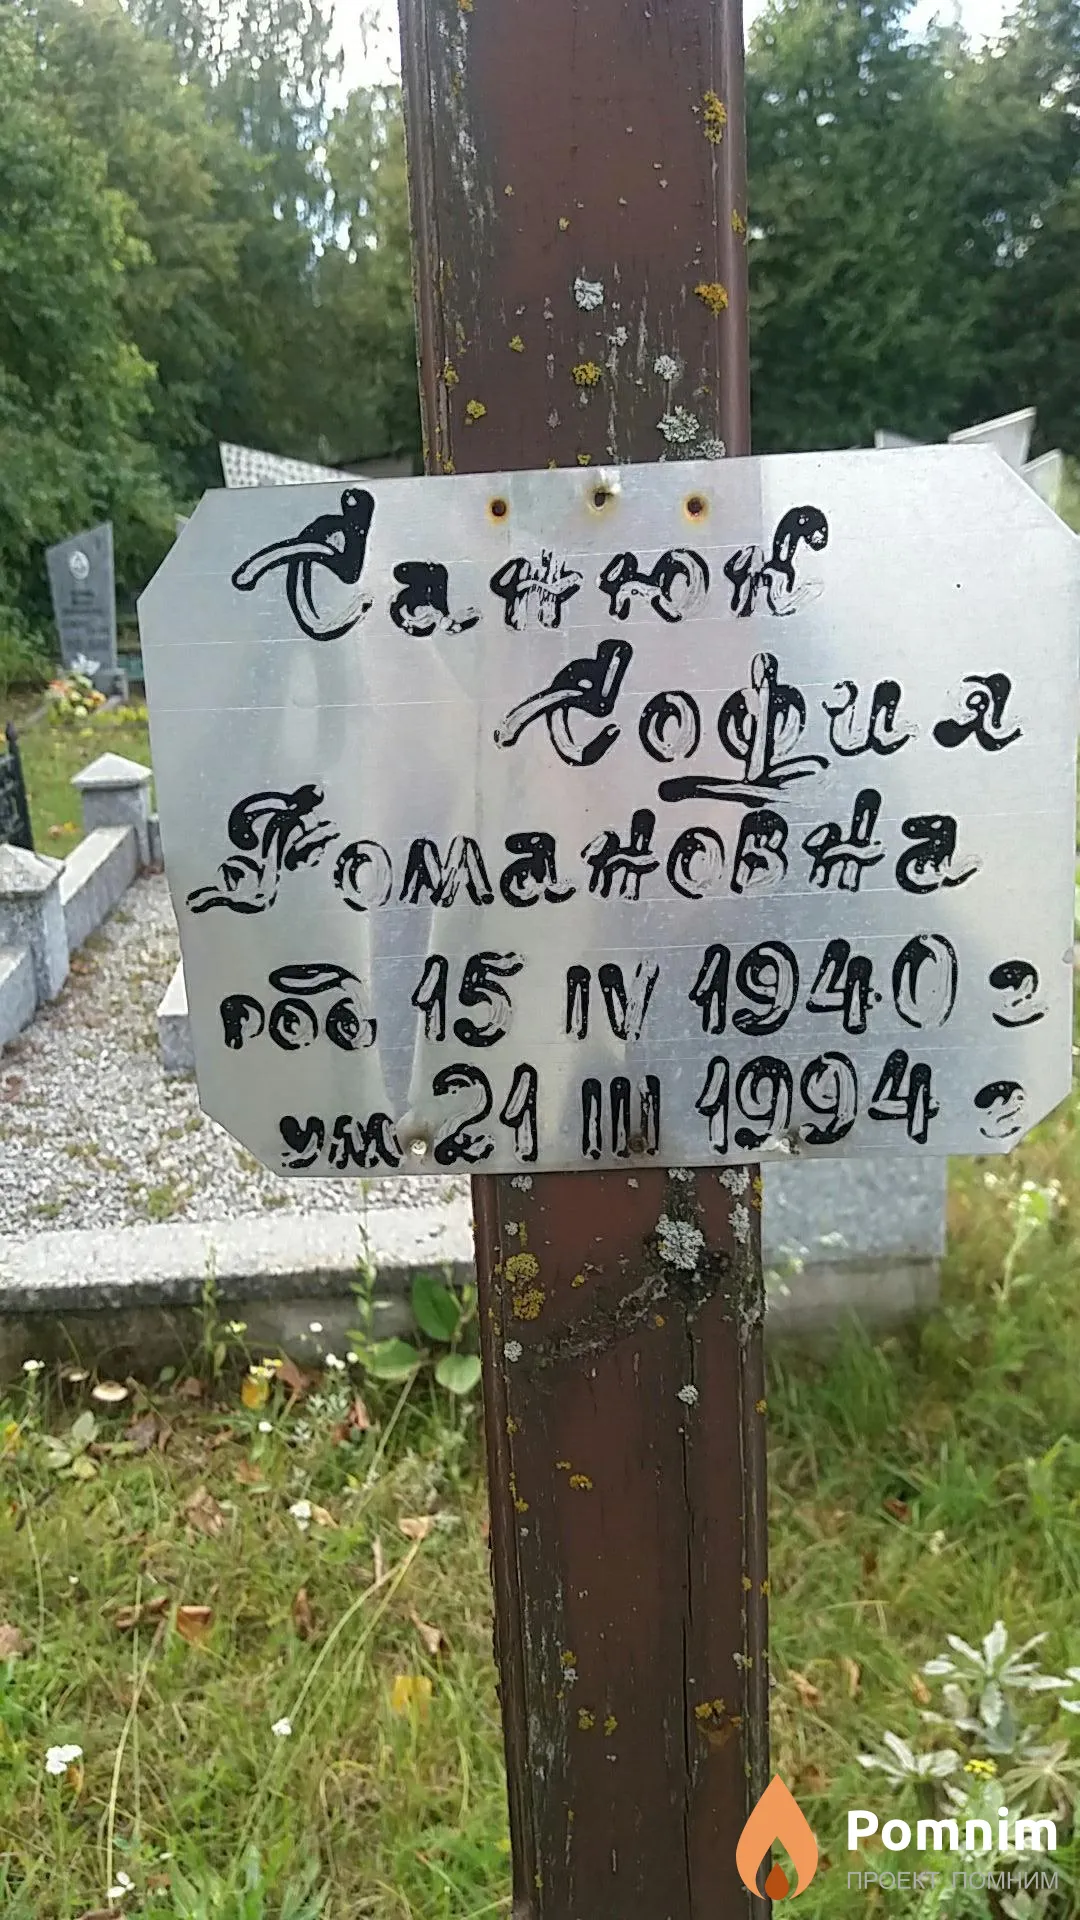 Санюк
София
Романовна
род 15 IV 1940 г
ум 21 III 1994 г
Pomnim
ПРОЕКТ ПОМНИМ